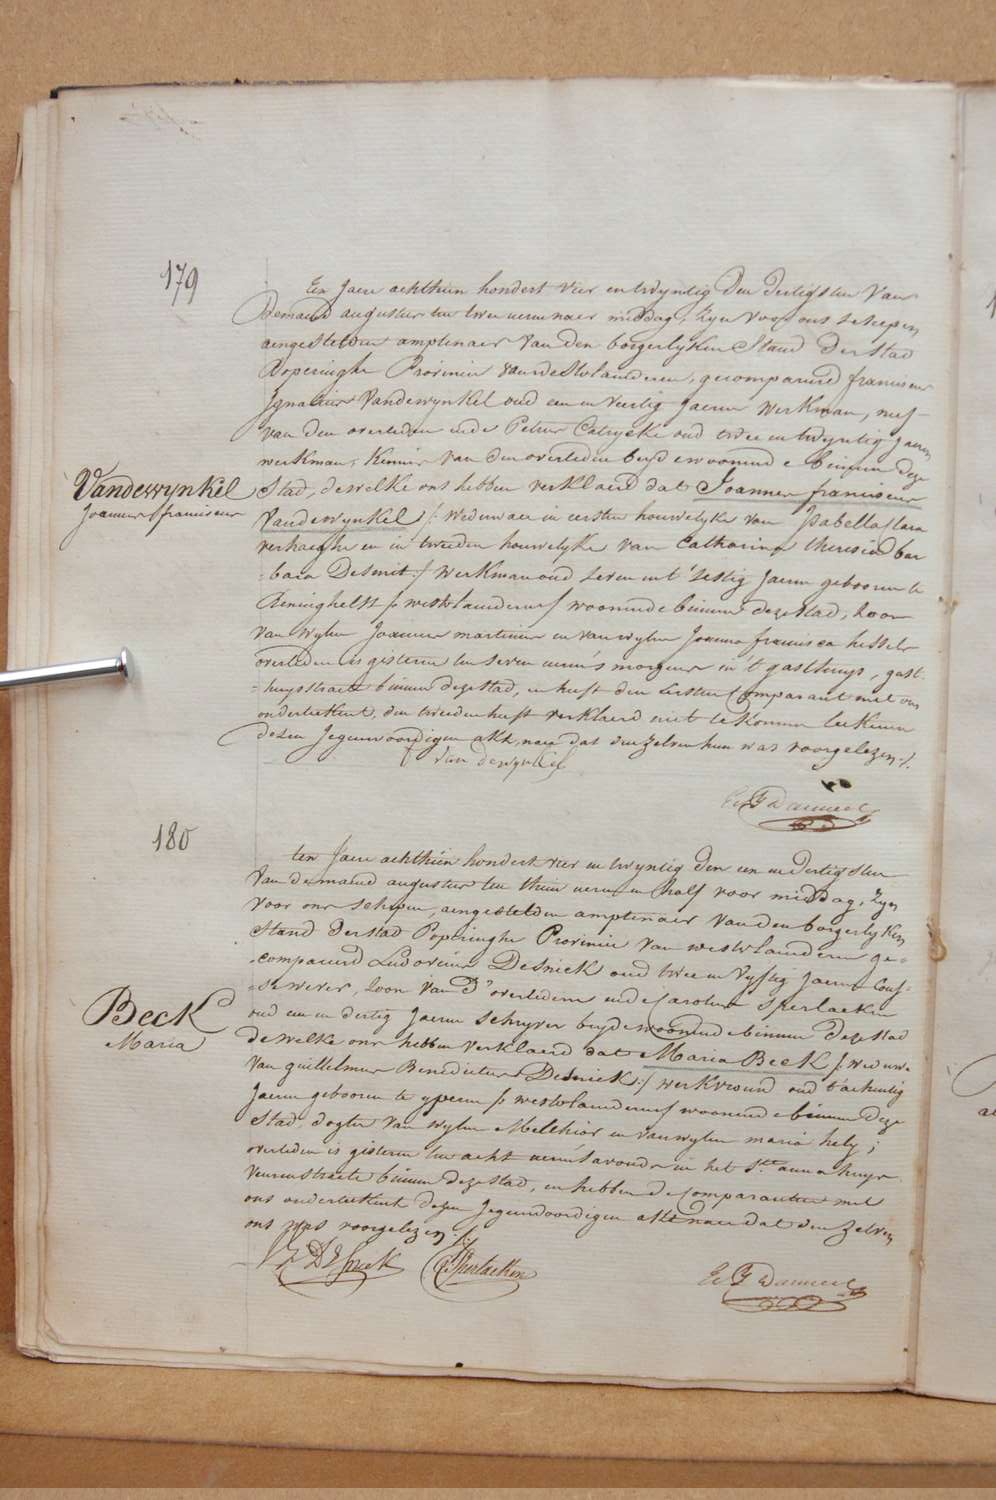 179
Ten Jaere achthien hondert vier en twyntig den dertigsten van
de maend augustus ten twee uren naer middag, zyn voor ons schepen
aengestelden amptenaer van den borgerlyken Stand der stad
Poperinghe Provincie van westvlaenderen, gecompareerd franciscus
Ignatius Vandewynkel oud een en veertig Jaeren werkman, neef
van den overleden ende Petrus Catrycke oud twee en twyntig Jaeren
werkman, Kennis van den overleden beyde woonende binnen deze
Vandewynkel
Joannes franciscus
Stad, dewelke ons hebben verklaerd dat Joannes franciscus
Vandewynkel /: weduwaer in eersten houwelyke van Isabella Clara
verhaeghe en in tweeden houwelyke van Catharina theresia bar
=bara Desmit :/ werkman oud seven en t'sestig Jaeren gebooren te
Reninghelst /: westvlaenderen :/ woonende binnen deze stad, Zoon
van wylen Joannes martinus en van wylen Joanna francisca hessels
overleden is gisteren ten seven uren 's morgens in 't gasthuys, gast
=huysstraete binnen deze stad, en heeft den eersten Comparant met ons
onderteekent, den tweeden heeft verklaerd niet te konnen teekenen
dezen Jegenwoordigen akt, naer dat den zelven hun was voorgelezen :/.
Van dewynkel
180
ten Jaere achthien hondert vier en twyntig den een en dertigsten
van de maend augustus ten thien uren en half voor middag, zyn
voor ons schepen, aengestelden amptenaer van den borgerlyken
Stand der stad Poperinghe Provincie van westvlaenderen ge=
=compareerd Ludovicus Desnick oud twee en vyftig Jaeren Cous=
=se wever, Zoon van d'overledene ende Carolus Sperlaeken
oud een en dertig Jaeren schryver beyde woonende binnen deze stad
Beck
Maria
dewelke ons hebben verklaerd dat Maria Beck /: weduwe
van guillelmus Benedictus Desnick :/ werkvrouw oud t'achentig
Jaeren gebooren te yperen /: westvlaenderen :/ woonende binnen deze
Stad, dogter van wylen Melchior en van wylen maria hely;
overleden is gisteren ten acht uren 's avonds in het Ste anna huys
veurnstraete binnen deze stad, en hebben de Comparanten met
ons onderteekent dezen Jegenwoordigen akt naer dat den zelven
ons was voorgelezen :/.